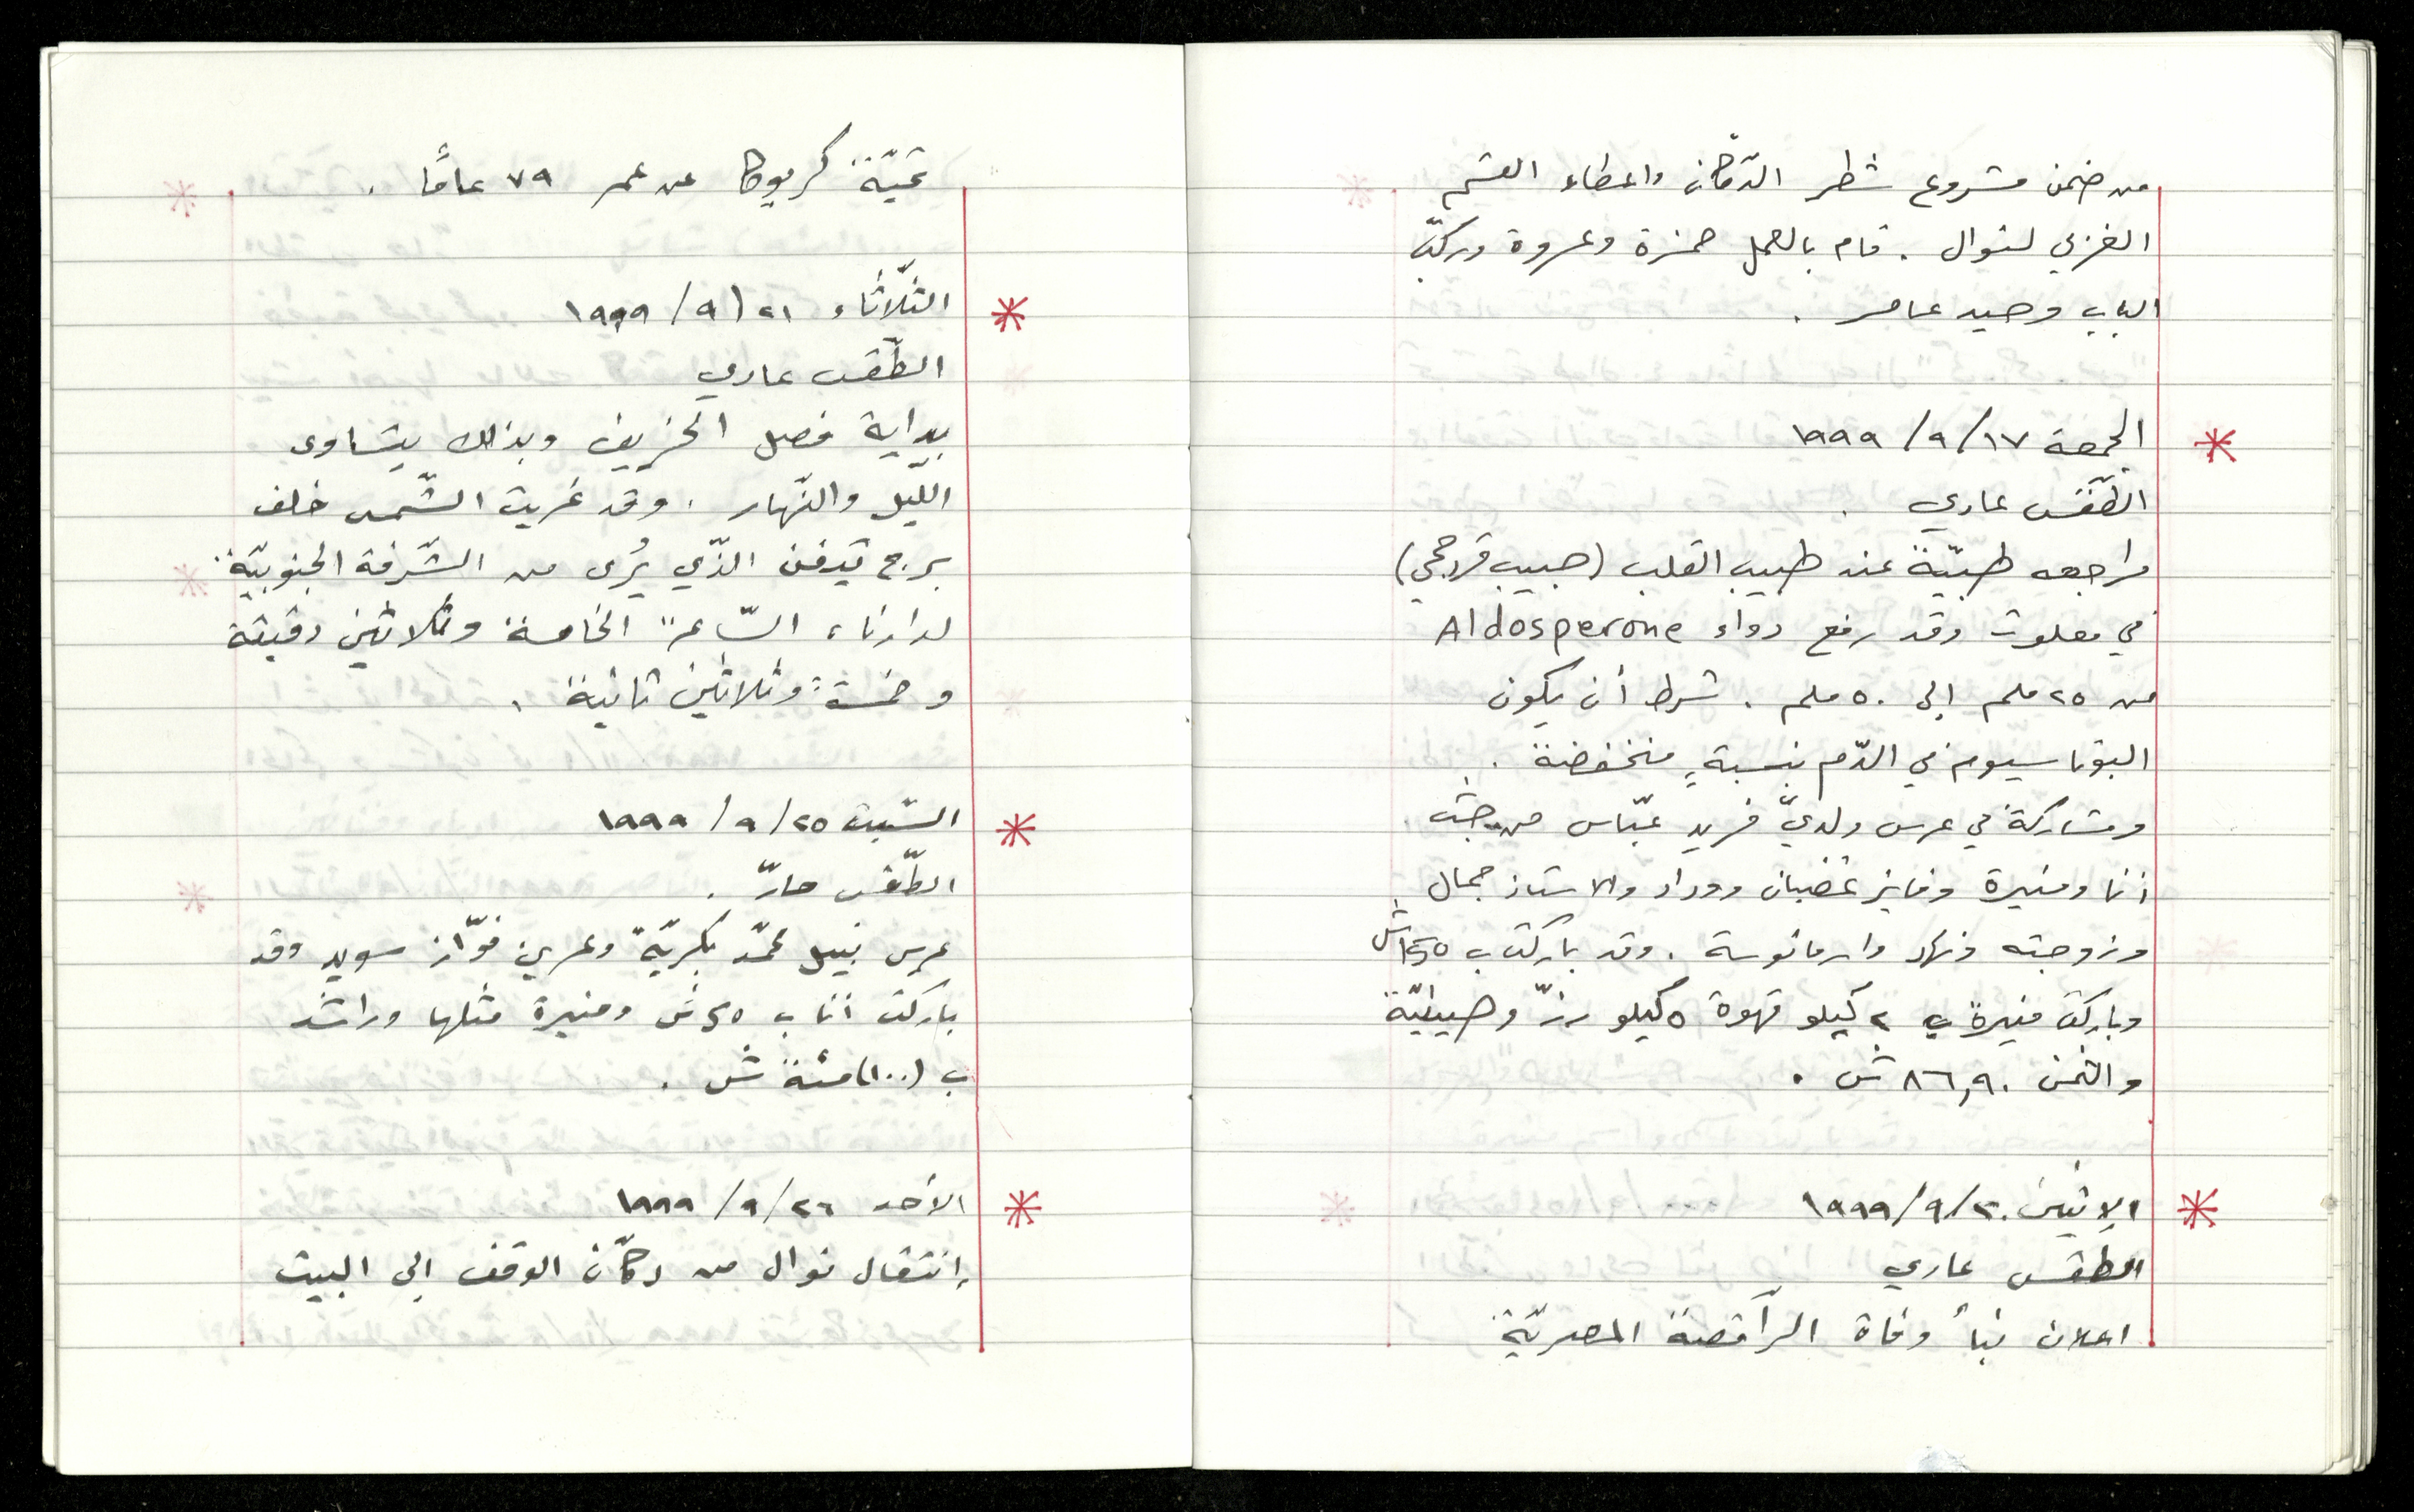 من ضمن مشروع شطر الدّكّان واعطاء القسم
الغربي لنوال . قام بالعمل حمزة وعروة وركّب
الباب وحيد عامر .
* الجمعة ١٧/٩/١٩٩٩
الطّقس عادي .
مراجعه طبيّة عند طبيب القلب (حبيب قرجحي)
في معلوت وقد رفع دواء Aldosperone
من ٢٥ ملم إلى ٥٠ ملم . شرط أن يكون
البوتاسيوم في الدّم بنسبةٍ منخفضة .
ومشاركة في عرس ولديّ فريد عبّاس من جتّ
أنا ومنيرة وفايز غضبان ووداد والاستاذ جمال
وزوجته ونهاد وارمانوسة . وقد باركت ب ٢٥٠ش
وباركت منيرة ب ٢ كيلو قهوة ٥ كيلو رزّ وصينيّة
والثمن ٨٦,٩٠ ش .
* الاثنين ٢٠/٩/١٩٩٩
الطقس عادي
اعلان نبأ وفاة الرّاقصة المصريّة
تحيّة كريوكا عن عمر ٧٩ عامًا .
* الثّلاثاء ٢١/٩/١٩٩٩
الطّقس عادي
بداية فصل الخريف وبذلك يتساوى
اللّيل والنّهار . وقد غربت الشّمس خلف
برج تيدفن الذّي يُرى من الشّرفة الجنوبيّة
لدارنا، السّاعة الخامسة وثلاثين دقيقة
وخمسة وثلاثين ثانية .
* السّبت ٢٥/٩/١٩٩٩
الطّقس حارّ .
عرس نبيل محمّد بكريّة وعرين فوّاز سويد وقد
باركت أنا ب ٢٥٠ش ومنيرة مثلها وراشد
ب (١٠٠) مئة ش .
* الأحد ٢٦/٩/١٩٩٩
إنتقال نوال من دكّان الوقف إلى البيت